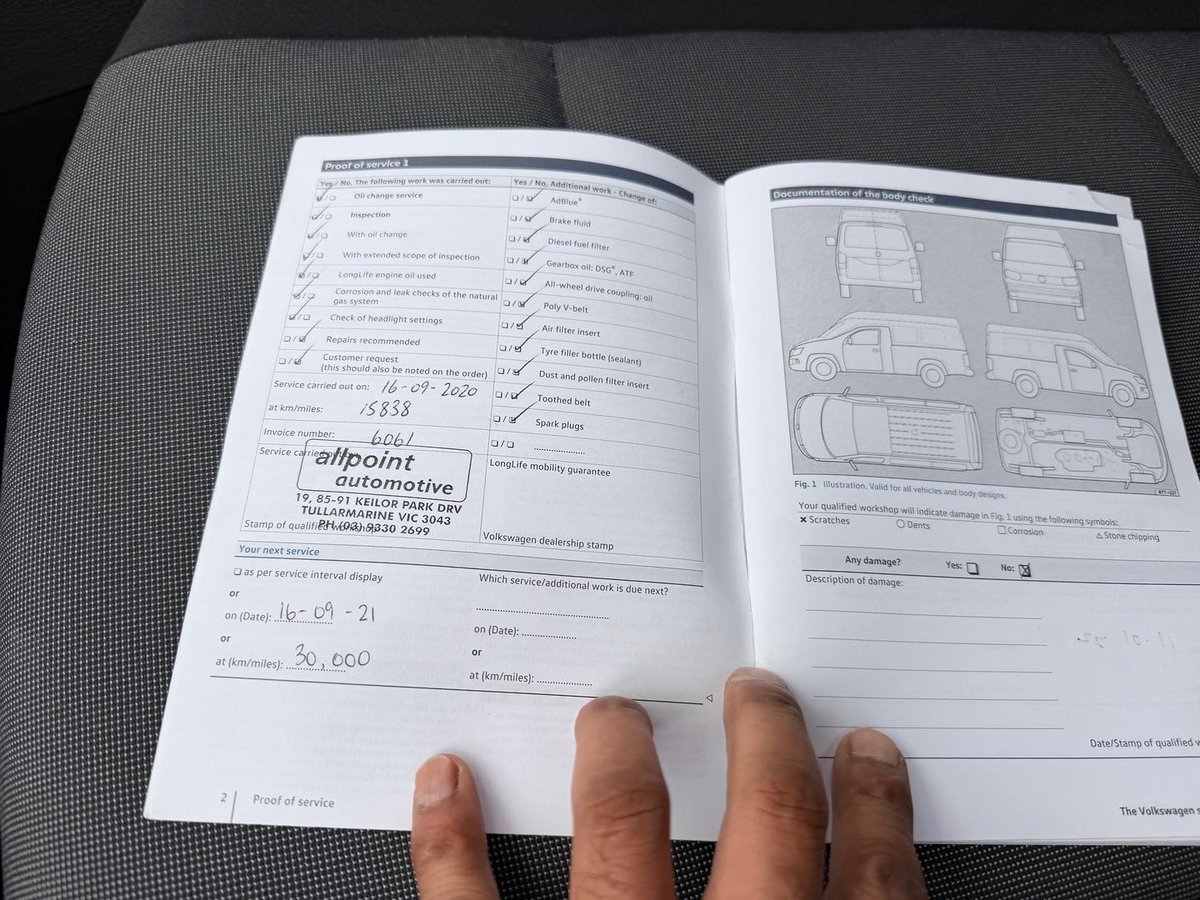 Proof of service 1
Yes / No. The following work was carried out:
Oil change service
Inspection
With oil change
With extended scope of inspection
LongLife engine oil used
Corrosion and leak checks of the natural
gas system
Check of headlight settings
Repairs recommended
Customer request
(this should also be noted on the order)
Service carried out on: 16-09-2020
at km/miles: 15838
Invoice number: 6061
Service carried
allpoint
automotive
19, 85-91 KEILOR PARK DRV
TULLARMARINE VIC 3043
PH (03) 9330 2699
Stamp of qualified workshop
Yes / No. Additional work - Change of:
AdBlue®
Brake fluid
Diesel fuel filter
Gearbox oil: DSG®, ATF
All-wheel drive coupling: oil
Poly V-belt
Air filter insert
Tyre filler bottle (sealant)
Dust and pollen filter insert
Toothed belt
Spark plugs
LongLife mobility guarantee
Volkswagen dealership stamp
Your next service
as per service interval display
or
on (Date): 16-09-21
or
at (km/miles): 30,000
Which service/additional work is due next?
on (Date):
or
at (km/miles):
2 Proof of service
Documentation of the body check
Fig. 1 Illustration. Valid for all vehicles and body designs.
Your qualified workshop will indicate damage in Fig. 1 using the following symbols:
× Scratches ○ Dents □ Corrosion △ Stone chipping
Any damage? Yes: No:
Description of damage:
Date/Stamp of qualified
The Volkswagen